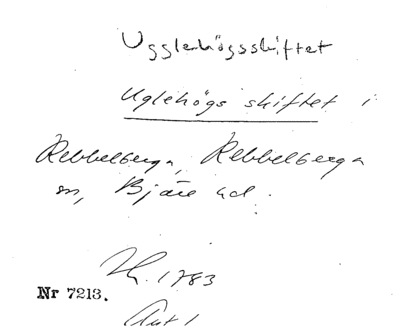 Ugglehögsskiftet
Uglehögs skiftet i
Rebbelberga, Rebbelberga
sn, Bjäre hd.
1783
Nr 7213.